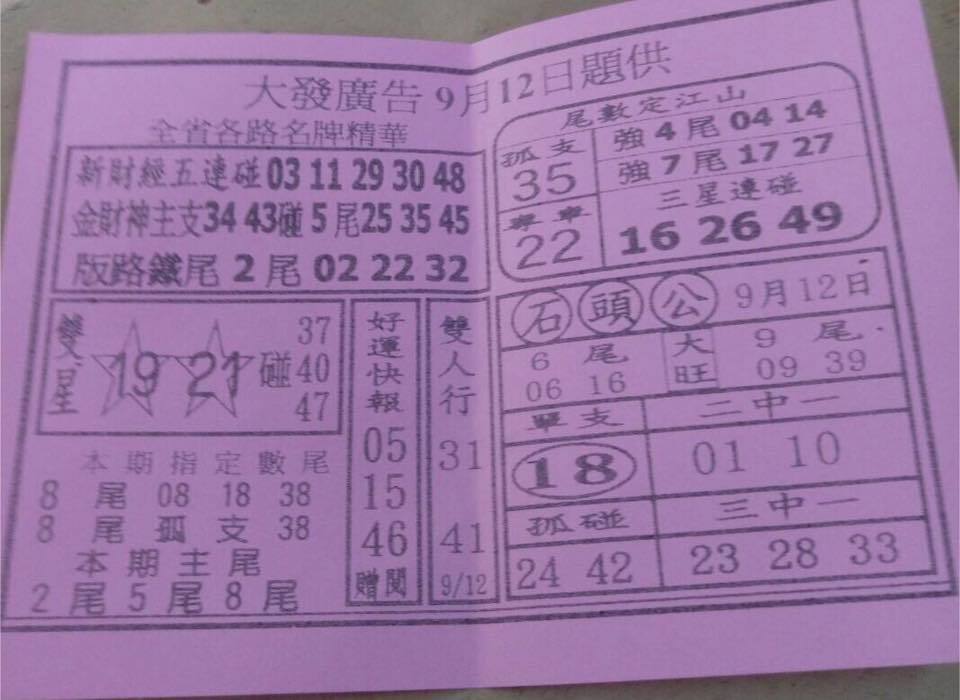 大發廣告 9月12日題供
全省各路名牌精華
新財經五連碰 03 11 29 30 48
金財神主支 34 43 碰 5 尾 25 35 45
版路鐵尾 2 尾 02 22 32
尾數定江山
孤支
35
專車
22
強 4 尾 04 14
強 7 尾 17 27
三星連碰
16 26 49
雙星
19 21 碰
37
40
47
本期指定數尾
8 尾 08 18 38
8 尾 孤 支 38
本期主尾
2 尾 5 尾 8 尾
好運快報
05
15
46
贈閱
雙人行
31
41
9/12
石頭公 9月12日
6 尾
06 16
大旺
9 尾
09 39
單支
18
二中一
01 10
孤碰
24 42
三中一
23 28 33